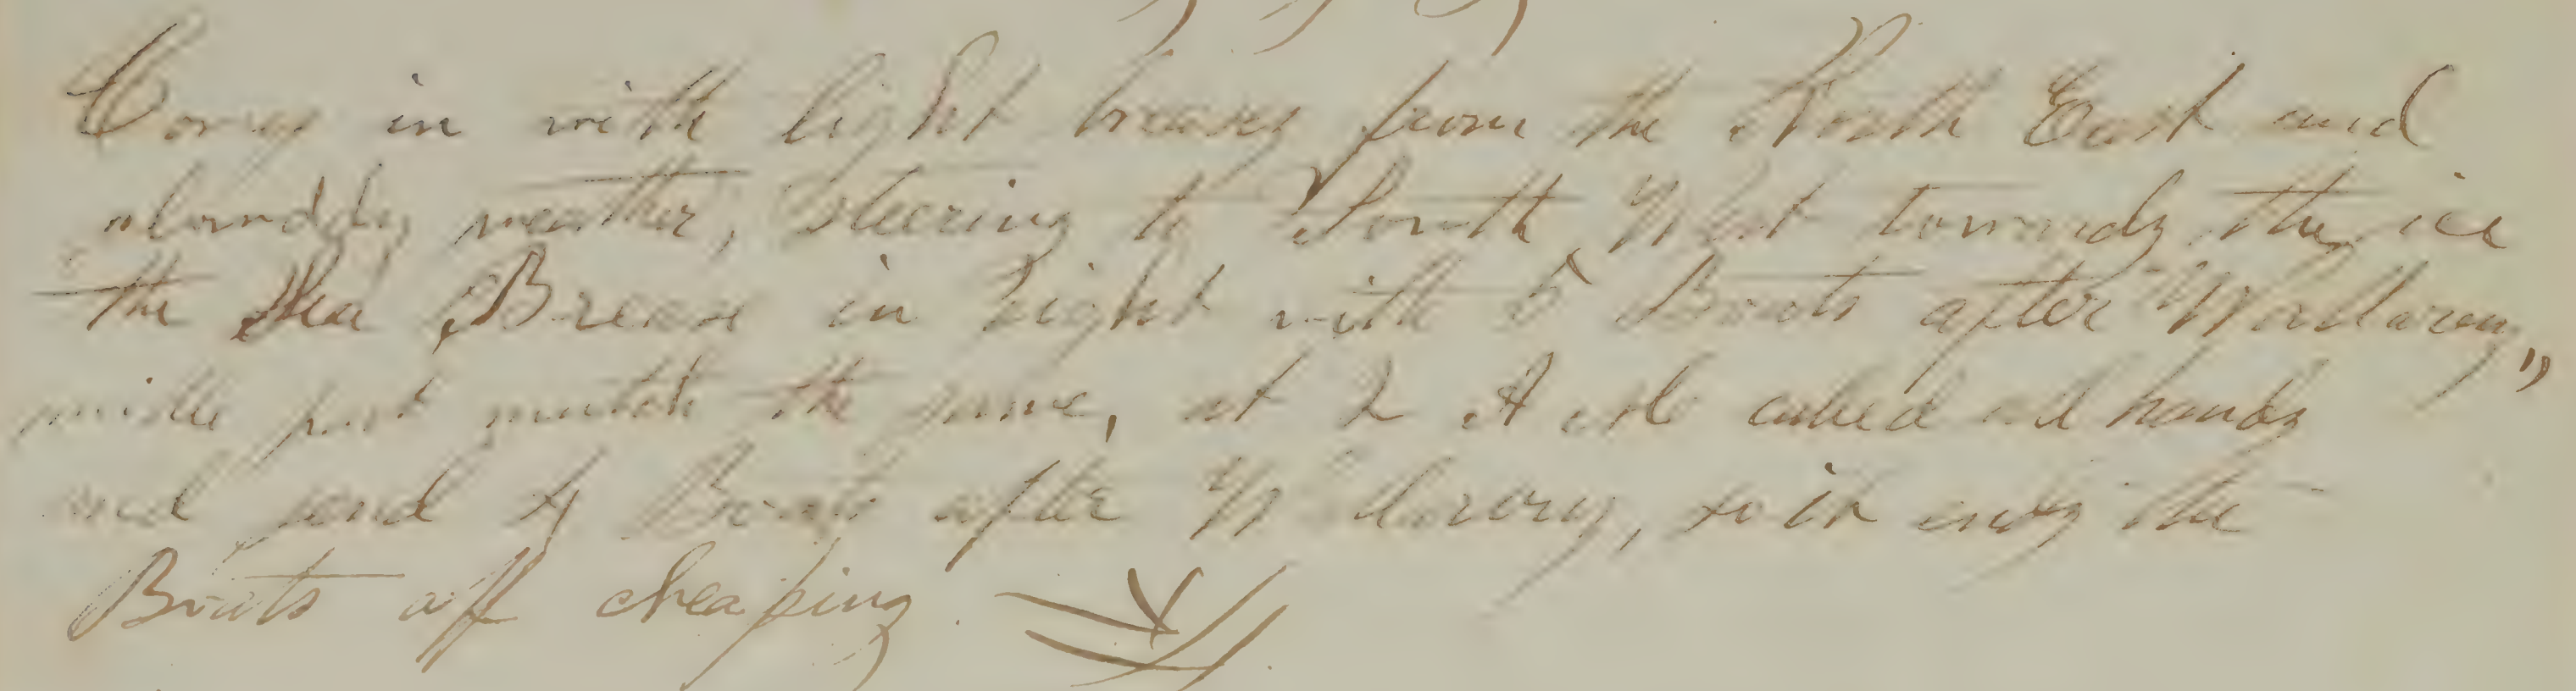 Comes in with light breases from the North East and
clouddy weather, steering to South West towards the ice
the Sea Brease in sight with 5 Boats after Wallarses,,
midle part mutch the same, at 2 A M called all hands
and send 4 Boats after Wallarses, so in ends the
Boats off cheaping